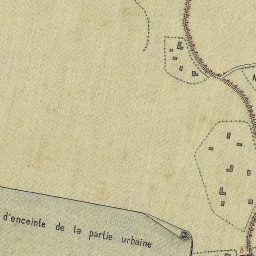 d'enceinte de la partie urbaine